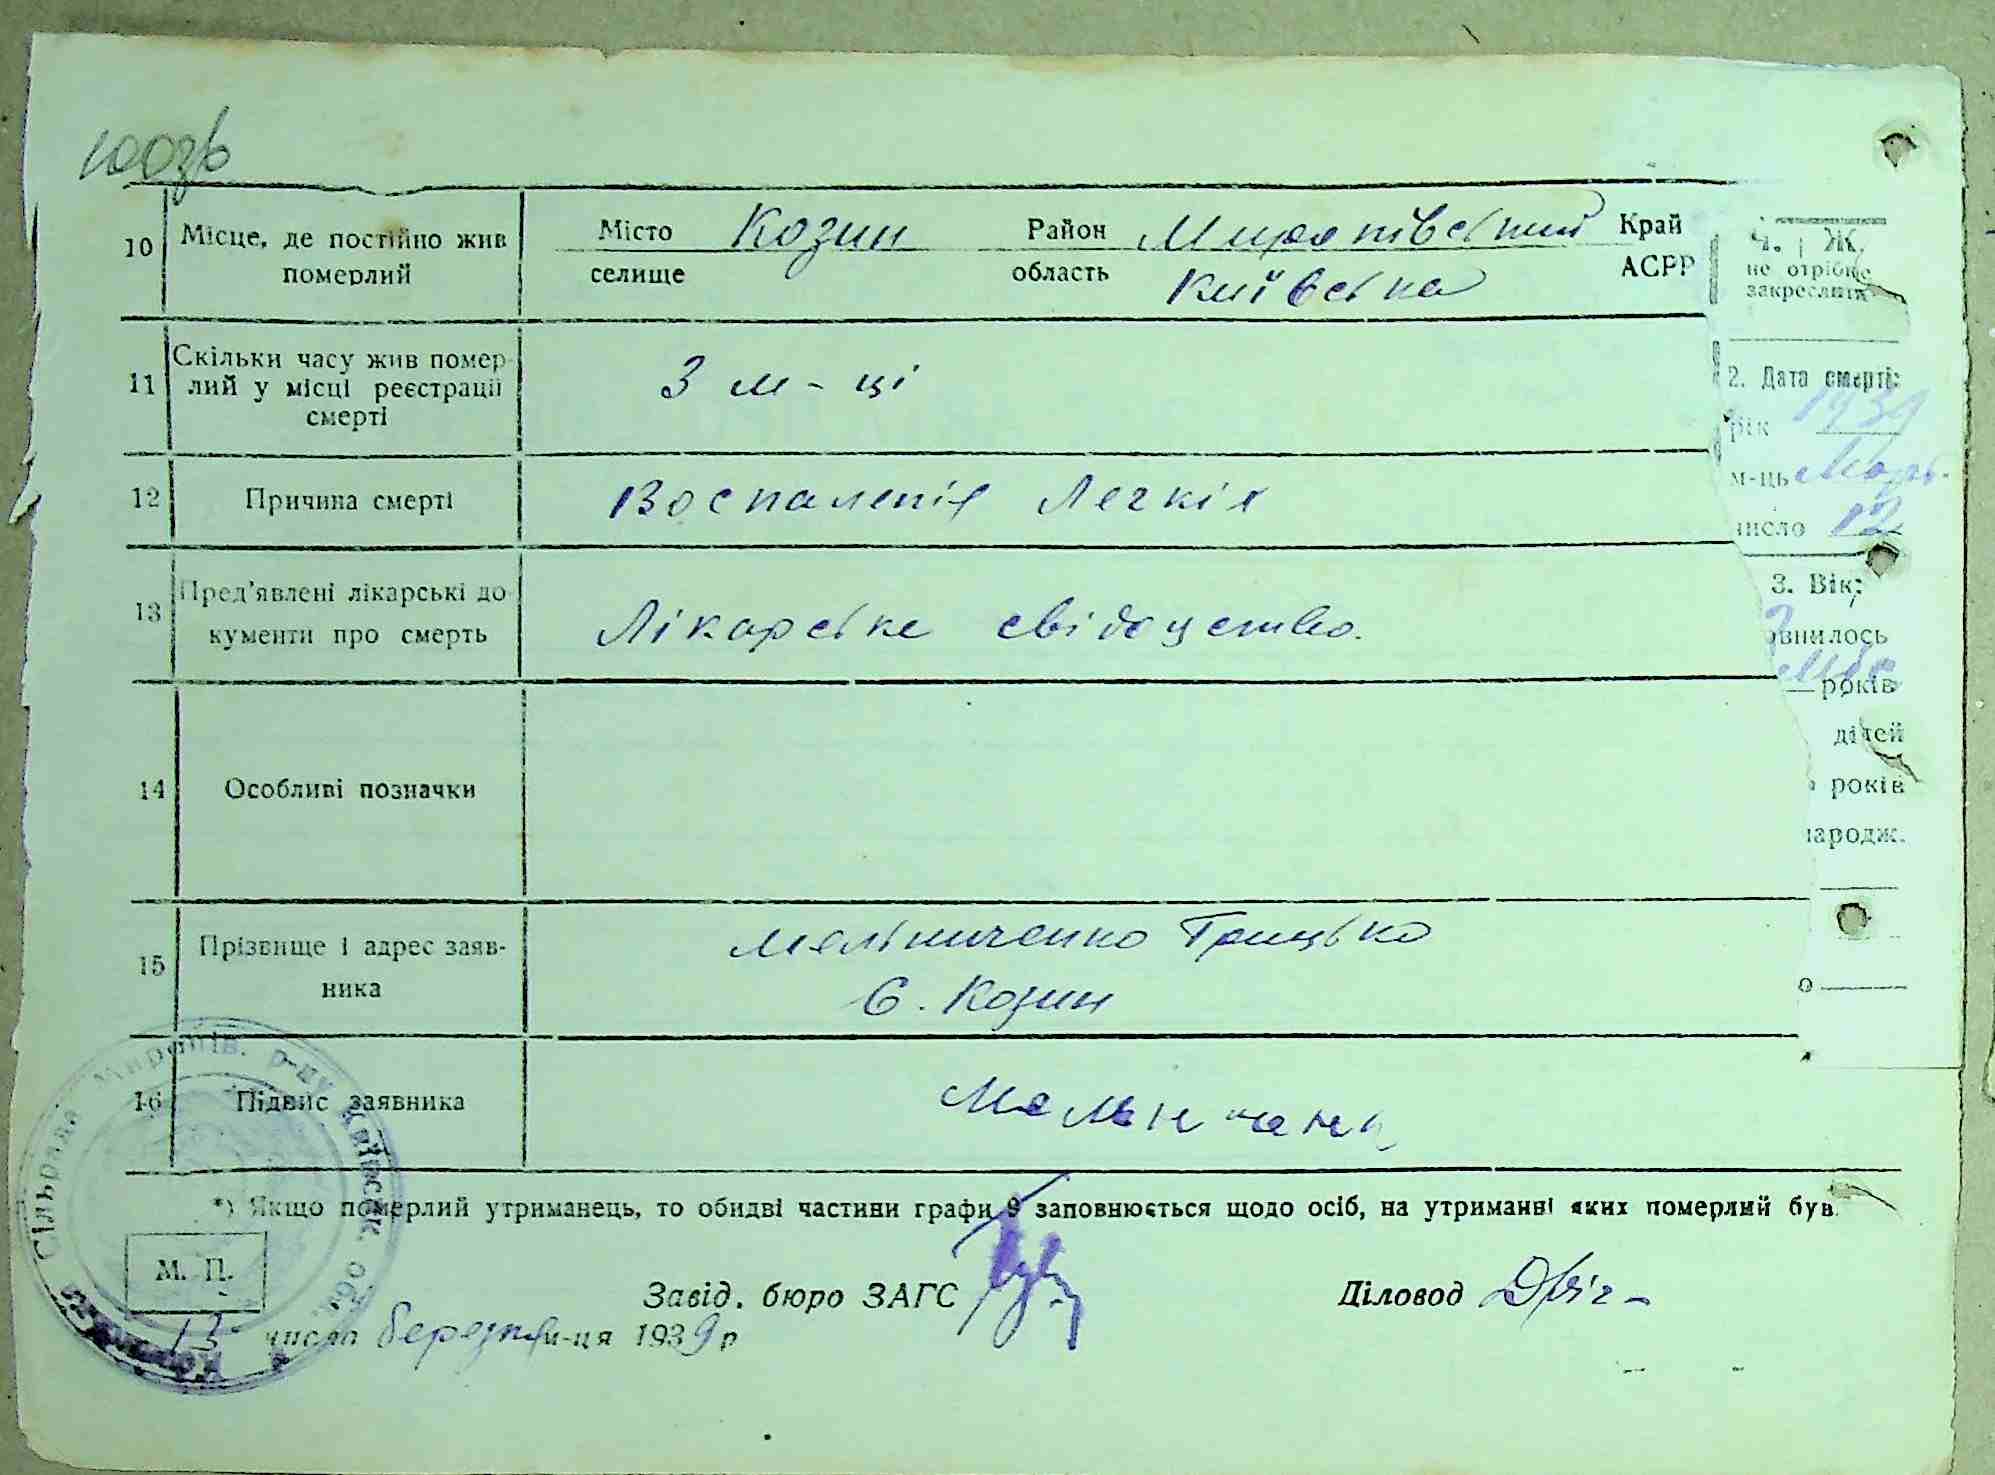 100зв
10 Місце, де постійно жив
померлий
Місто Козин Район Миропівський Край
селище область Київська АСРР
11 Скільки часу жив помер-
лий у місці реєстрації
смерті
3 м-ці
12 Причина смерті Воспаленія Легкія
13 Пред'явлені лікарські до-
кументи про смерть
Лікарське свідоцство.
14 Особливі позначки
15 Прізвище і адрес заяв-
ника
Мельниченко Грицько
с. Козин
16 Підпис заявника
*) Якщо померлий утриманець, то обидві частини графи 9 заповнюється щодо осіб, на утриманні яких померлий був.
М. П.
Завід. бюро ЗАГС
Діловод
13 числа березня м-ця 1939 р
Сільрада Миропів. р-ну Київськ. обл.
Ч. Ж.
не отрібне
закреслити
2. Дата смерті:
рік 1939
м-ць Марть
число 12
3. Вік:
овнилось
років
дітей
років
народж.